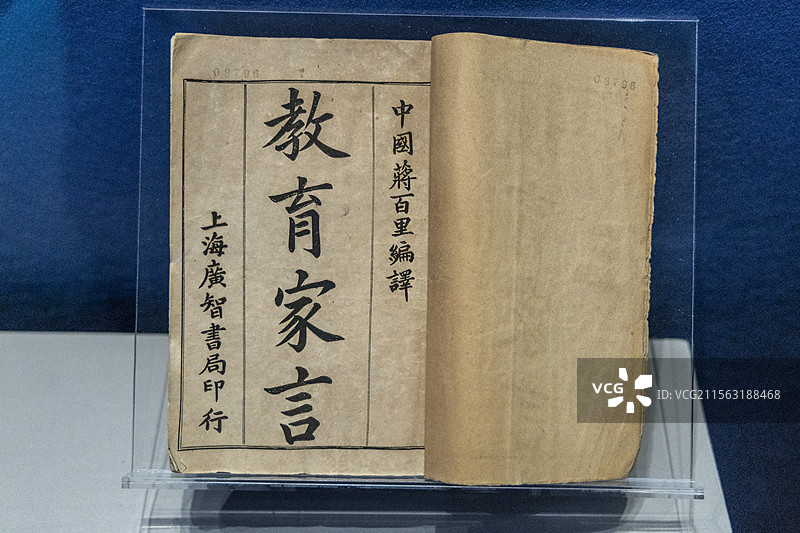 03796
03796
中國蔣百里編譯
教育家言
上海廣智書局印行
VCG
ID: VCG211563188468